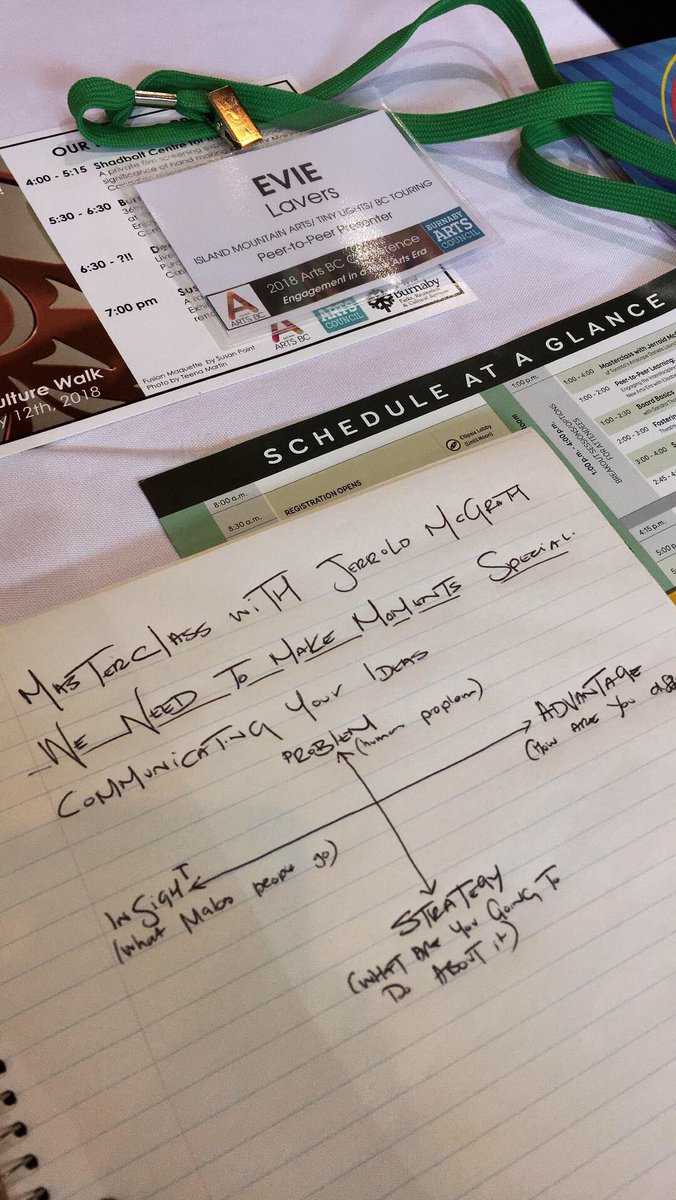 OUR
4:00 - 5:15 Shadbolt Centre
A private film screening
significance of hand
5:30 - 6:30
6:30 - ?!!
7:00 pm
Fusion Maquette by Susan Point
Photo by Teena Martin
ulture Walk
y 12th, 2018
ARTS BC
ARTS
COUNCIL
Burnaby
EVIE
Lavers
ISLAND MOUNTAIN ARTS/ TINY LIGHTS/ BC TOURING
Peer-to-Peer Presenter
2018 Arts BC Conference
Engagement in a Arts Era
ARTS BC
BURNABY
ARTS
COUNCIL
SCHEDULE AT A GLANCE
8:00 a.m.
8:30 a.m.
REGISTRATION OPENS
Ellipsis Lobby
(Until Noon)
1:00 p.m.
BREAKOUT SESSIONS/OPTIONS
FOR ATTENDEES
1:00 p.m. - 4:00 p.m.
1:00 - 4:00 Masterclass with Jerrold
1:00 - 2:00 Peer-to-Peer Learning
Engaging the Interdisciplinary
1:00 - 2:30 Board Basics
2:00 - 3:00 Fostering
3:00 - 4:00
2:45
4:15 p.m.
5:00 p.m.
MASTERCLASS WITH JERROLD MCGRATH
WE NEED TO MAKE MOMENTS SPECIAL.
COMMUNICATING YOUR IDEAS
PROBLEM
(human problem)
ADVANTAGE
(HOW ARE YOU
INSIGHT
(What Makes people go)
STRATEGY
(WHAT ARE YOU GOING TO
DO ABOUT it)